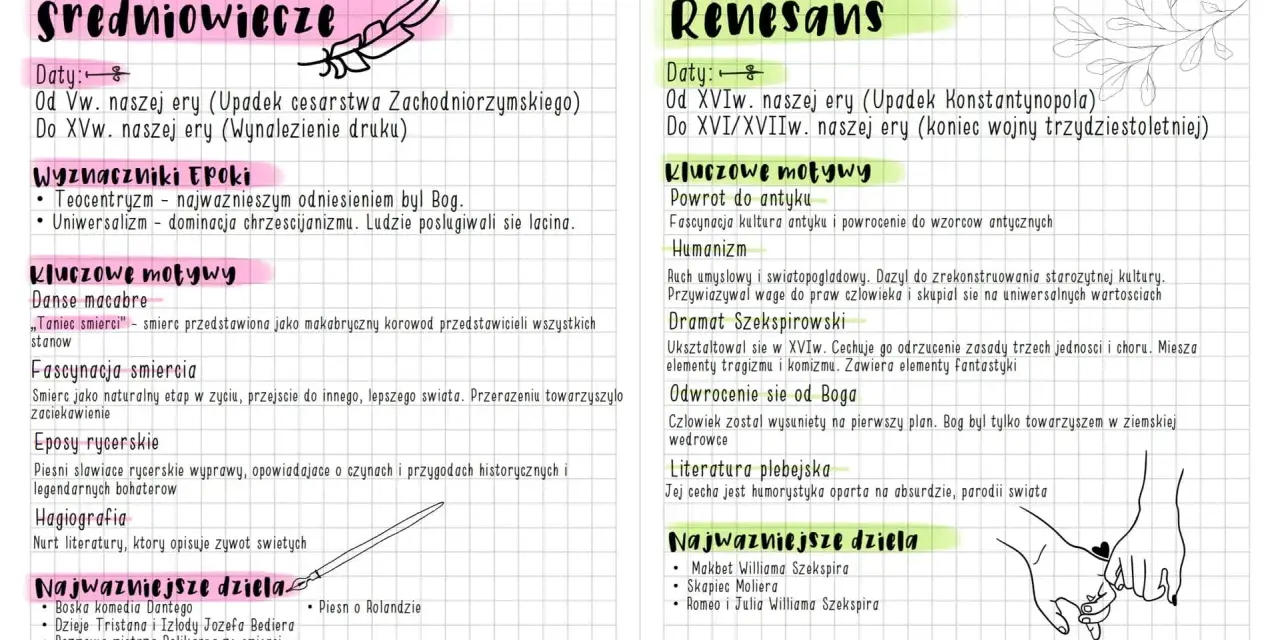 Sredniowiecze
Daty:
Od Vw. naszej ery (Upadek cesarstwa Zachodniorzymskiego)
Do XVw. naszej ery (Wynalezienie druku)
Wyznaczniki Epoki
• Teocentryzm - najwaznieszym odniesieniem byl Bog.
• Uniwersalizm - dominacja chrzescijanizmu. Ludzie poslugiwali sie lacina.
Kluczowe motywy
Danse macabre
„Taniec smierci" - smierc przedstawiona jako makabryczny korowod przedstawicieli wszystkich
stanow
Fascynacja smiercia
Smierc jako naturalny etap w zyciu, przejscie do innego, lepszego swiata. Przerazeniu towarzyszylo
zaciekawienie
Eposy rycerskie
Piesni slawiace rycerskie wyprawy, opowiadajace o czynach i przygodach historycznych i
legendarnych bohaterow
Hagiografia
Nurt literatury, ktory opisuje zywot swietych
Najwazniejsze dziela
• Boska komedia Dantego
• Piesn o Rolandzie
• Dzieje Tristana i Izlody Jozefa Bediera
Renesans
Daty:
Od XVIw. naszej ery (Upadek Konstantynopola)
Do XVI/XVIIw. naszej ery (koniec wojny trzydziestoletniej)
Kluczowe motywy
Powrot do antyku
Fascynacja kultura antyku i powrocenie do wzorcow antycznych
Humanizm
Ruch umyslowy i swiatopogladowy. Dazyl do zrekonstruowania starozytnej kultury.
Przywiazywal wage do praw czlowieka i skupial sie na uniwersalnych wartosciach
Dramat Szekspirowski
Uksztaltowal sie w XVIw. Cechuje go odrzucenie zasady trzech jednosci i choru. Miesza
elementy tragizmu i komizmu. Zawiera elementy fantastyki
Odwrocenie sie od Boga
Czlowiek zostal wysuniety na pierwszy plan. Bog byl tylko towarzyszem w ziemskiej
wedrowce
Literatura plebejska
Jej cecha jest humorystyka oparta na absurdzie, parodii swiata
Najwazniejsze dziela
• Makbet Williama Szekspira
• Skapiec Moliera
• Romeo i Julia Williama Szekspira